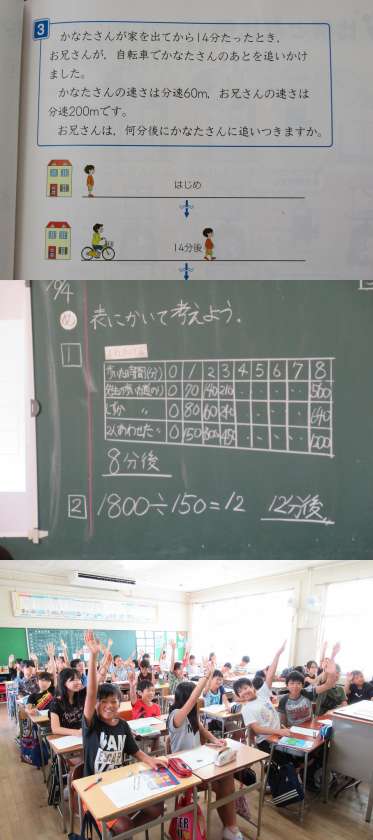 3
かなたさんが家を出てから14分たったとき、
お兄さんが、自転車でかなたさんのあとを追いかけ
ました。
かなたさんの速さは分速60m、お兄さんの速さは
分速200mです。
お兄さんは、何分後にかなたさんに追いつきますか。
はじめ
14分後
9/4
め 表にかいて考えよう。
1
歩いた時間(分) 0 1 2 3 4 5 6 7 8
0 70 140 210 560
0 80 160 240 640
2人あわせた〃 0 150 300 450 1200
8分後
2 1800÷150=12 12分後